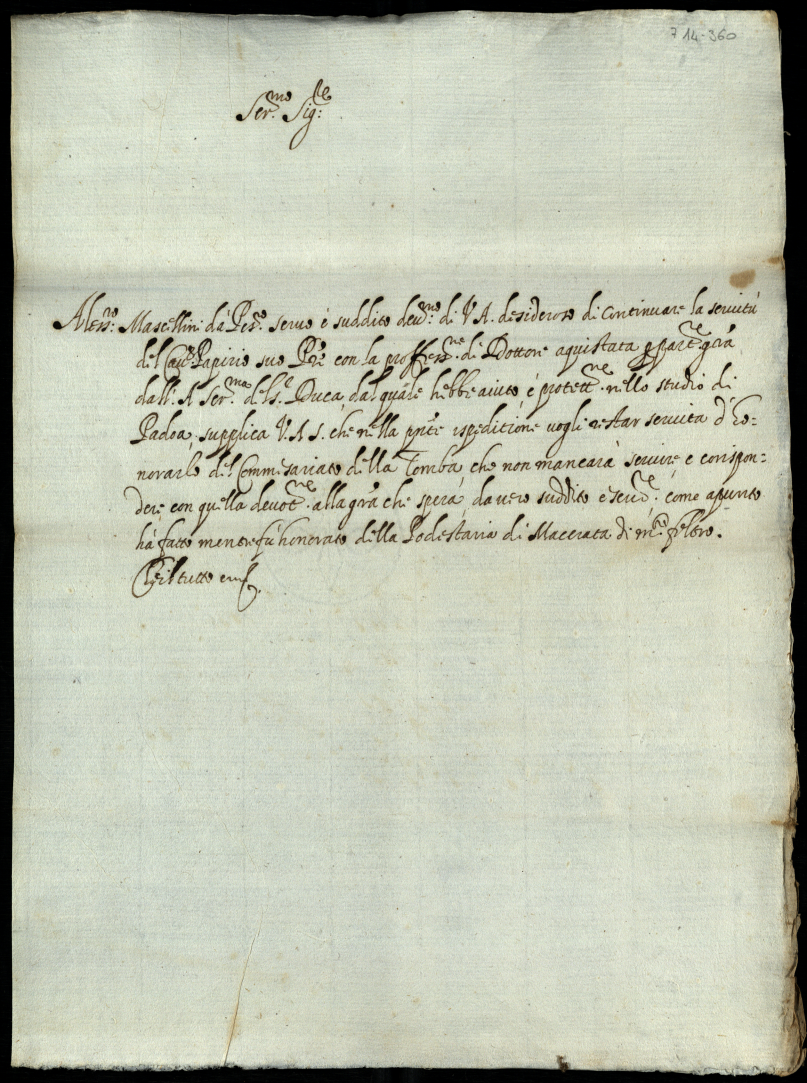 7 14-360
Ser.mo Sig.re
Aless.ro Mascellini da Pes.o servo e suddito dev.mo di V A. desideroso di continuare la servitù
del Cau.re Papirio suo P're con la profess.ne di Dottore aquistata p part.e gr'a
dall' A Ser.ma del S.r Duca, dal quale hebbe aiuto, e protett.ne nello studio di
Padoa, supplica V. A S. che nella pn'te ispeditione vogli restar servita d'ho=
norarlo del Commisariato della Tomba che non mancarà servire, e corispon=
dere con quella devot.ne alla gr'a che spera, da vero suddito e ser.re come apunto
hà fatto mentre fù honorato della Podestaria di Macerata di m.te feltro.
Che il tutto